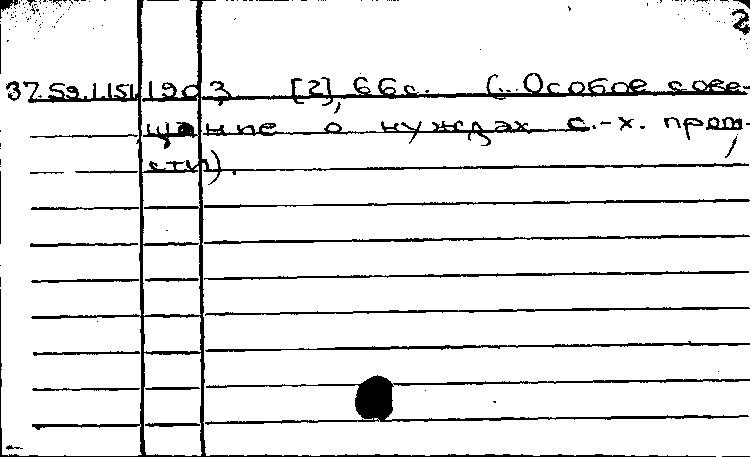 2
37.59.1.151 1903, [2], 66с. (..Особое сове-
щание о нуждах с.-х. пром-
сти).